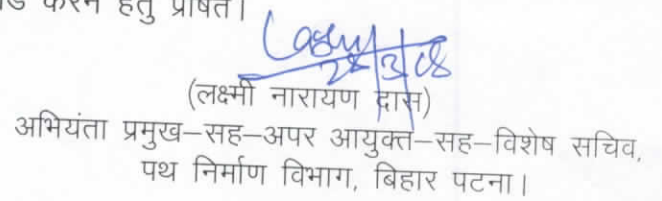 करने हेतु प्रेषित।
28/3/08
(लक्ष्मी नारायण दास)
अभियंता प्रमुख–सह–अपर आयुक्त–सह–विशेष सचिव,
पथ निर्माण विभाग, बिहार पटना।